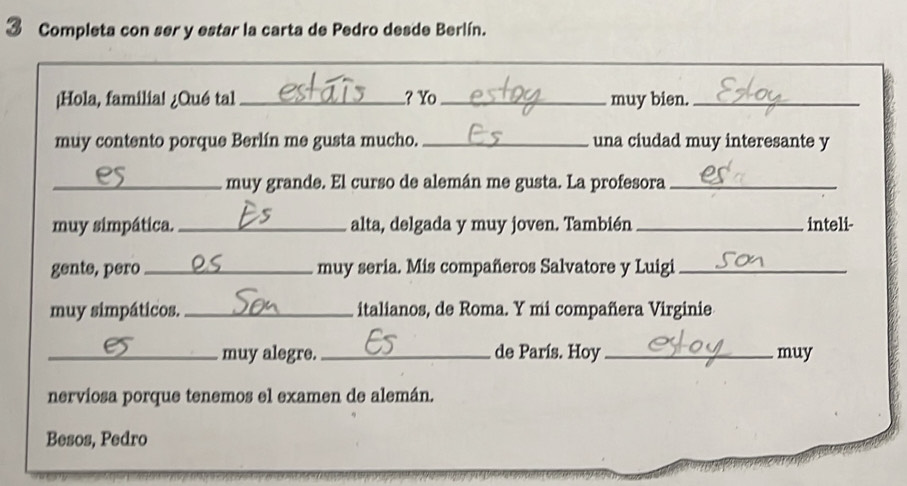 3 Completa con ser y estar la carta de Pedro desde Berlín.
¡Hola, familia! ¿Qué tal estáis ? Yo estoy muy bien. Estoy
muy contento porque Berlín me gusta mucho. Es una ciudad muy interesante y
es muy grande. El curso de alemán me gusta. La profesora es
muy simpática. Es alta, delgada y muy joven. También ____ inteli-
gente, pero es muy seria. Mis compañeros Salvatore y Luigi son
muy simpáticos. Son italianos, de Roma. Y mi compañera Virginie
es muy alegre. Es de París. Hoy estoy muy
nerviosa porque tenemos el examen de alemán.
Besos, Pedro